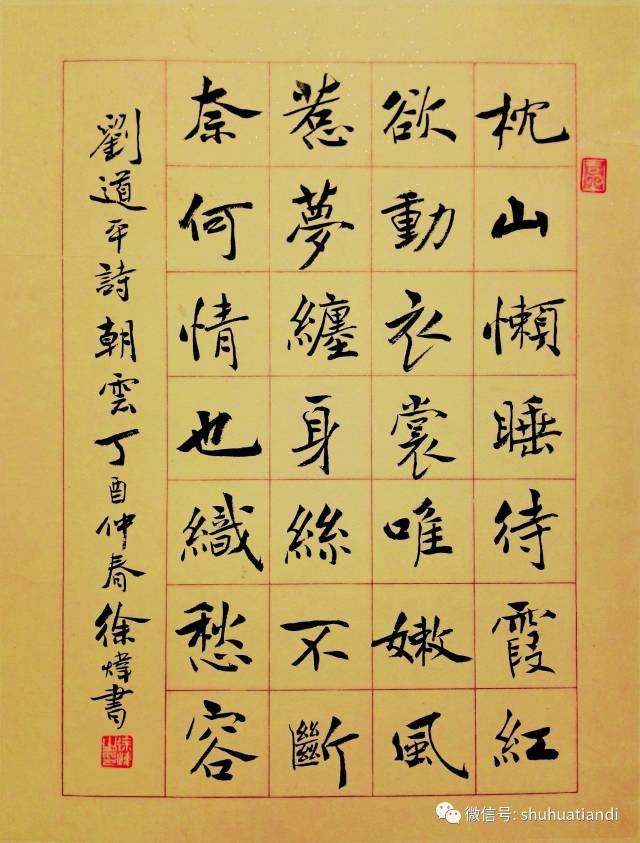 枕山懶睡待霞紅
欲動衣裳唯嫩風
惹夢纏身絲不斷
奈何情也織愁容
劉道平詩朝雲丁酉仲春徐煒書
微信号: shuhuatiandi